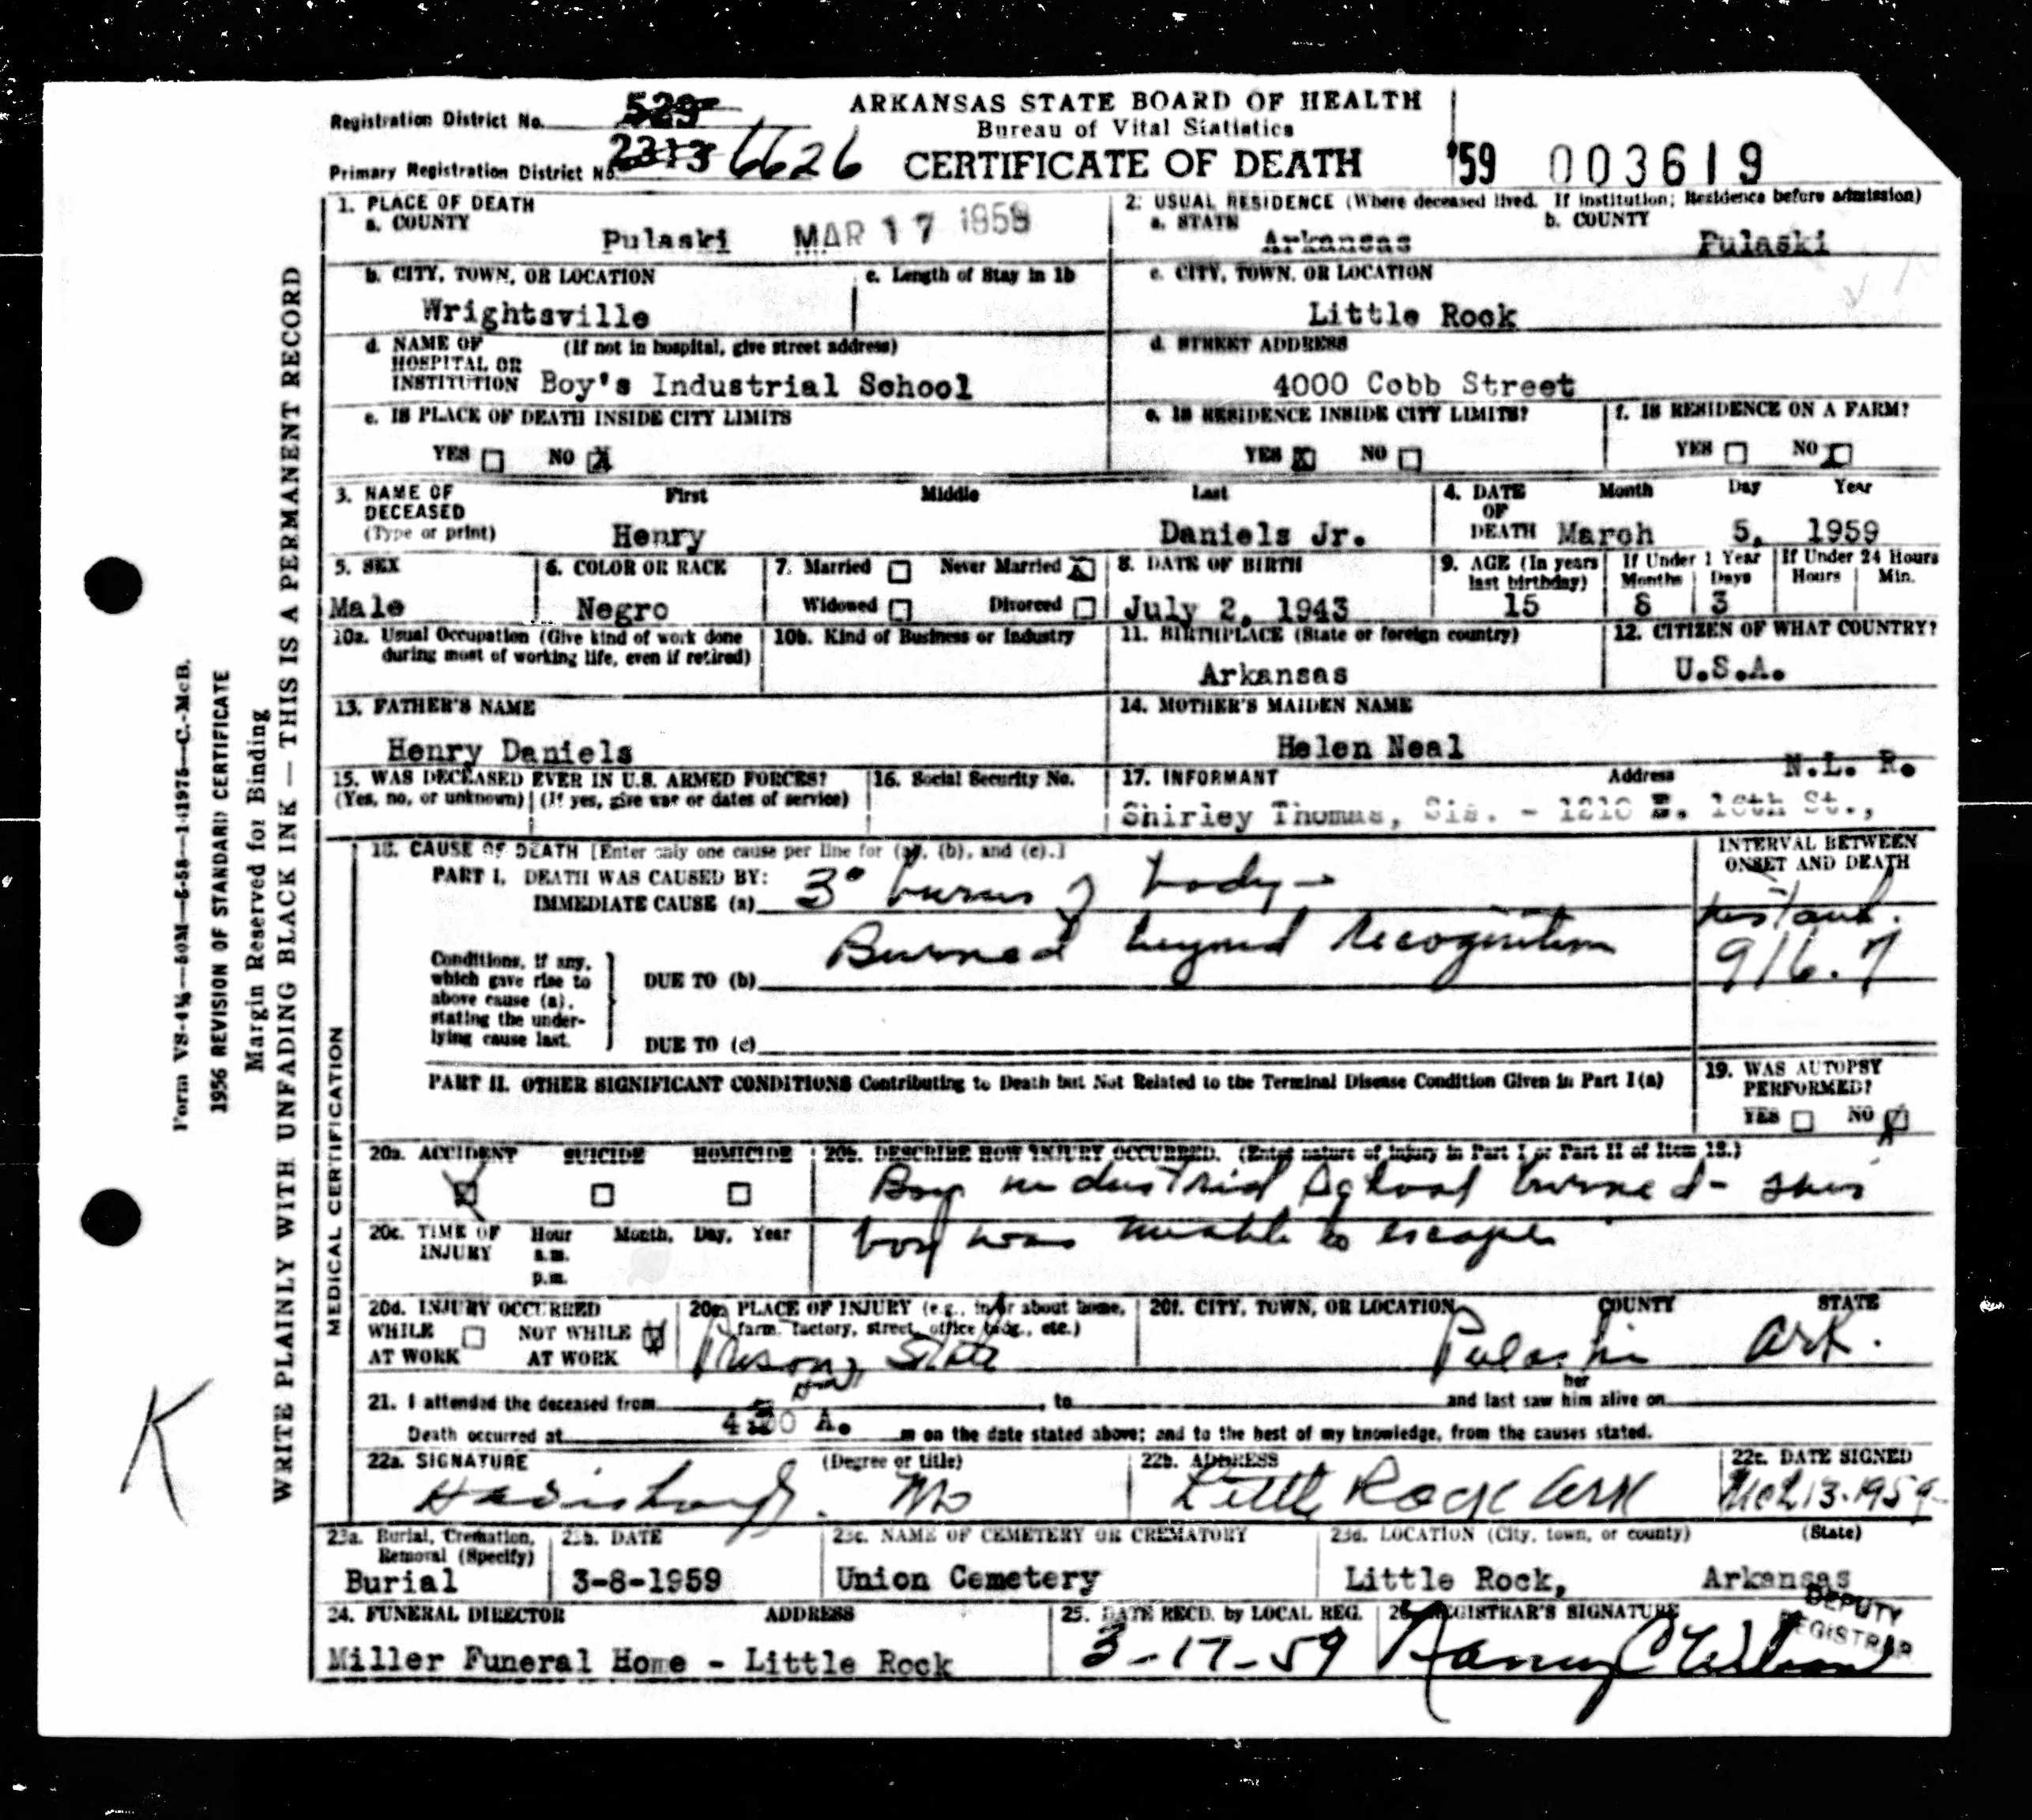 Registration District No. 529
ARKANSAS STATE BOARD OF HEALTH
Bureau of Vital Statistics
Primary Registration District No. 2313 6626
CERTIFICATE OF DEATH
'59 003619
1. PLACE OF DEATH
a. COUNTY
Pulaski MAR 17 1959
2. USUAL RESIDENCE (Where deceased lived. If institution; Residence before admission)
a. STATE b. COUNTY
Arkansas Pulaski
b. CITY, TOWN, OR LOCATION c. Length of Stay in 1b
Wrightsville
c. CITY, TOWN, OR LOCATION
Little Rock
d. NAME OF (If not in hospital, give street address)
HOSPITAL OR
INSTITUTION Boy's Industrial School
d. STREET ADDRESS
4000 Cobb Street
e. IS PLACE OF DEATH INSIDE CITY LIMITS
YES NO X
e. IS RESIDENCE INSIDE CITY LIMITS?
YES X NO
f. IS RESIDENCE ON A FARM?
YES NO X
3. NAME OF DECEASED (Type or print)
First Middle Last
Henry Daniels Jr.
4. DATE OF DEATH
Month Day Year
March 5, 1959
5. SEX
Male
6. COLOR OR RACE
Negro
7. Married Never Married X
Widowed Divorced
8. DATE OF BIRTH
July 2, 1943
9. AGE (In years last birthday)
15
If Under 1 Year
Months Days
8 3
If Under 24 Hours
Hours Min.
10a. Usual Occupation (Give kind of work done
during most of working life, even if retired)
10b. Kind of Business or Industry
11. BIRTHPLACE (State or foreign country)
Arkansas
12. CITIZEN OF WHAT COUNTRY?
U.S.A.
13. FATHER'S NAME
Henry Daniels
14. MOTHER'S MAIDEN NAME
Helen Neal
15. WAS DECEASED EVER IN U.S. ARMED FORCES?
(Yes, no, or unknown) (If yes, give war or dates of service)
16. Social Security No.
17. INFORMANT Address N.L. R.
Shirley Thomas, Sis. - 1210 E. 16th St.,
18. CAUSE OF DEATH [Enter only one cause per line for (a), (b), and (c).]
INTERVAL BETWEEN
ONSET AND DEATH
PART I. DEATH WAS CAUSED BY:
IMMEDIATE CAUSE (a) 3° burns of body -
Instant.
Burned beyond recognition
916.7
Conditions, if any,
which gave rise to
above cause (a),
stating the under-
lying cause last.
DUE TO (b)
DUE TO (c)
PART II. OTHER SIGNIFICANT CONDITIONS Contributing to Death but Not Related to the Terminal Disease Condition Given in Part I(a)
19. WAS AUTOPSY
PERFORMED?
YES NO
20a. ACCIDENT SUICIDE HOMICIDE
20b. DESCRIBE HOW INJURY OCCURRED. (Enter nature of injury in Part I or Part II of Item 18.)
Boy industrial School burned - this
boy was unable to escape
20c. TIME OF INJURY
Hour Month, Day, Year
a.m.
p.m.
20d. INJURY OCCURRED
WHILE AT WORK NOT WHILE AT WORK
20e. PLACE OF INJURY (e.g., in or about home,
farm, factory, street, office bldg., etc.)
Prison, State
20f. CITY, TOWN, OR LOCATION COUNTY STATE
Pulaski Ark.
21. I attended the deceased from , to and last saw him her alive on
Death occurred at 4:00 A. m on the date stated above; and to the best of my knowledge, from the causes stated.
22a. SIGNATURE (Degree or title)
MD
22b. ADDRESS
Little Rock Ark
22c. DATE SIGNED
Mch 13-1959
23a. Burial, Cremation,
Removal (Specify)
Burial
23b. DATE
3-8-1959
23c. NAME OF CEMETERY OR CREMATORY
Union Cemetery
23d. LOCATION (City, town, or county) (State)
Little Rock, Arkansas
24. FUNERAL DIRECTOR ADDRESS
Miller Funeral Home - Little Rock
25. DATE RECD. by LOCAL REG.
3-17-59
26. REGISTRAR'S SIGNATURE
DEPUTY
REGISTRAR
Form VS-4¼—50M—5-58—1-41975—C.-McB.
1956 REVISION OF STANDARD CERTIFICATE
Margin Reserved for Binding
WRITE PLAINLY WITH UNFADING BLACK INK — THIS IS A PERMANENT RECORD
MEDICAL CERTIFICATION
K